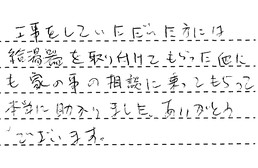 工事をしていただいた方には
給湯器を取り付けてもらった他に
も家の事の相談に乗ってもらって
本当に助かりました。ありがとう
ございます。